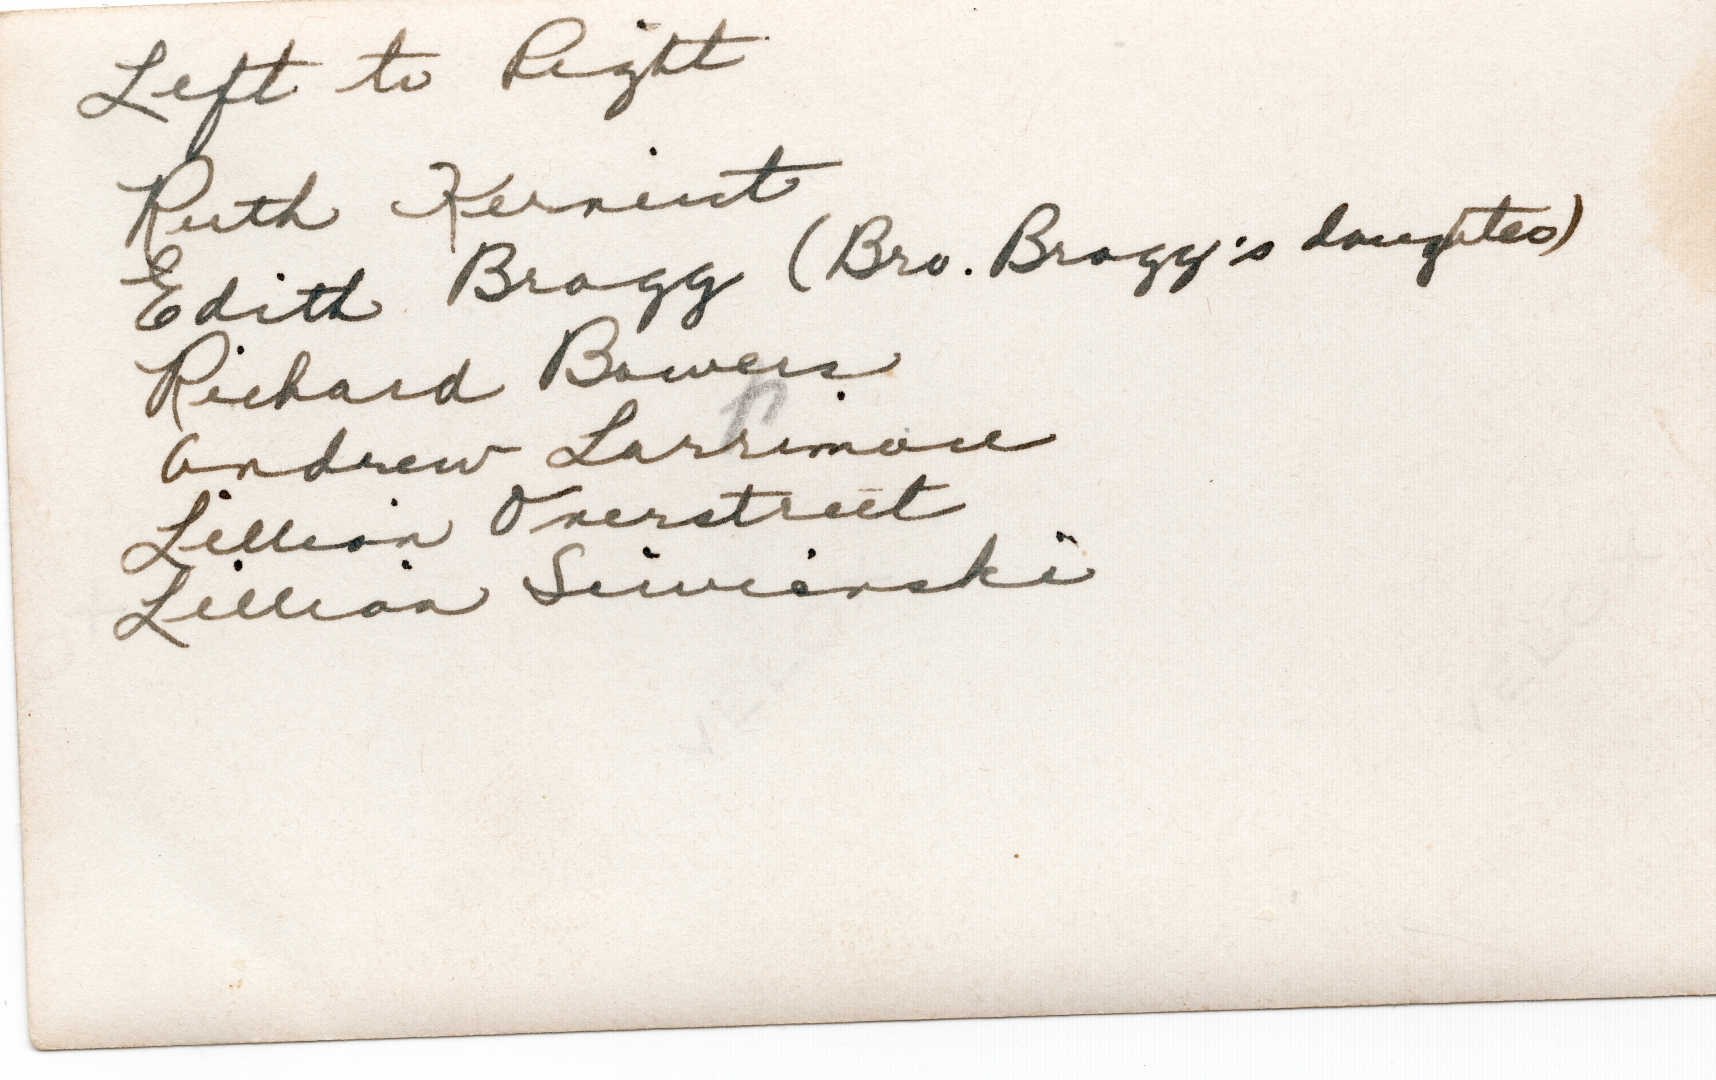 Left to Right
Ruth
Edith Bragg (Bro. Bragg's daughter)
Richard Bowers
Andrew Larrimore
Lillian Overstreet
Lillian
VELOX